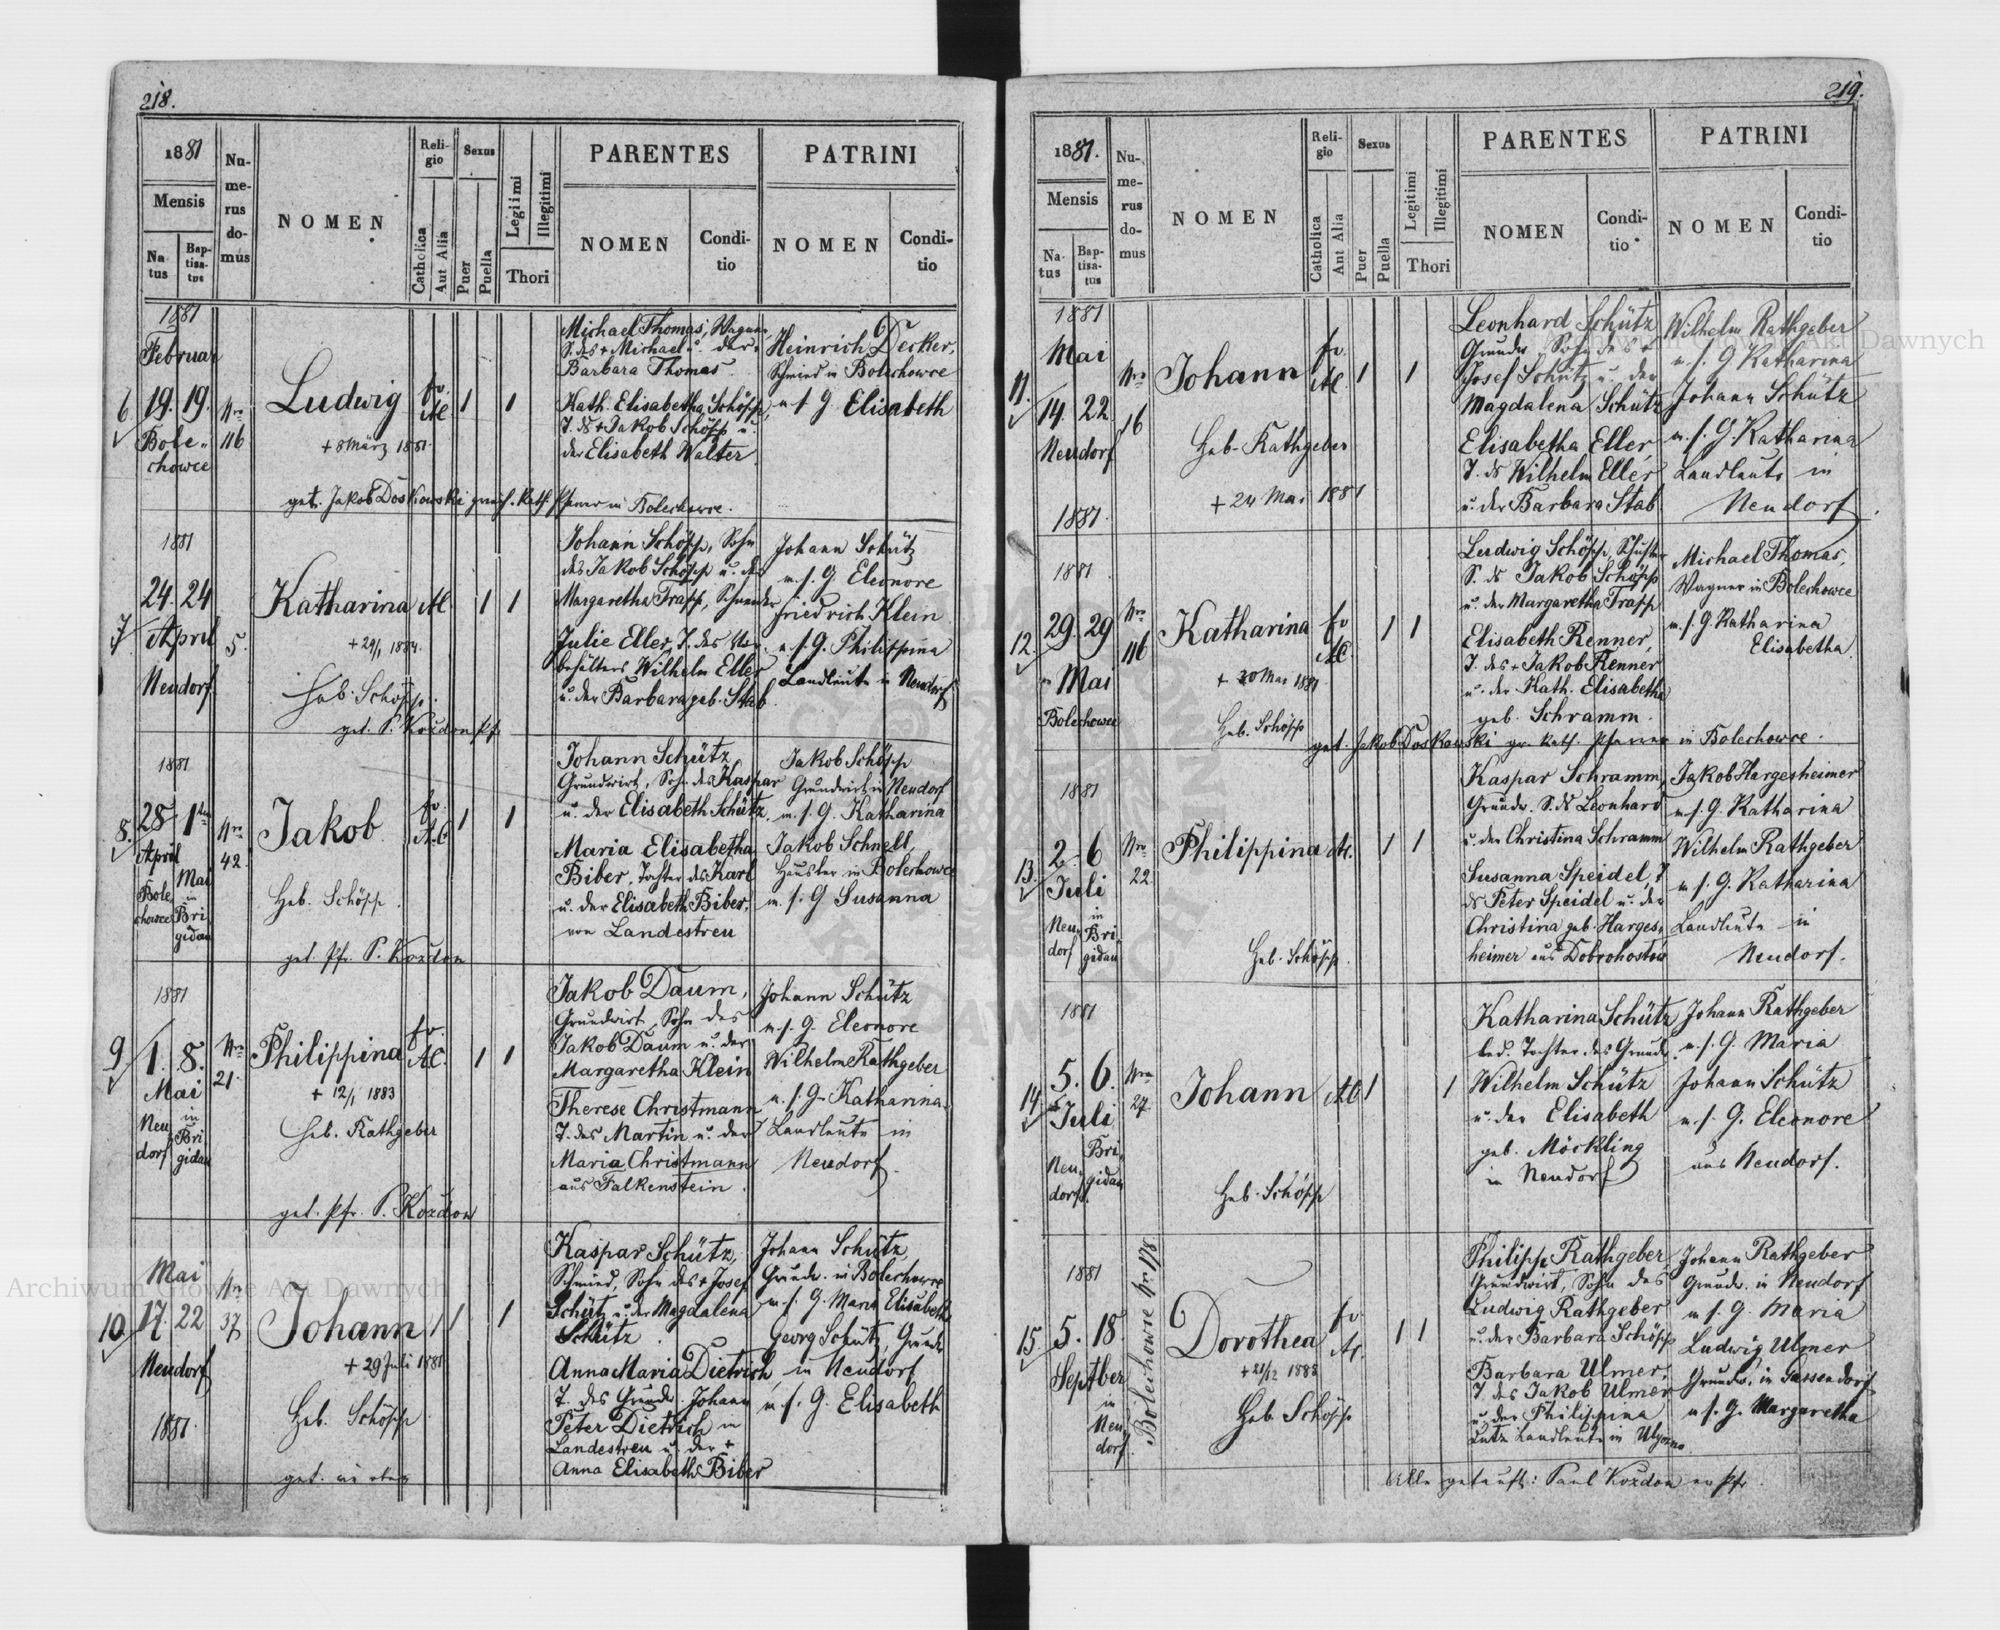 218.
1881
Mensis
Na-
tus
Bap-
tisa-
tus
Nu-
me-
rus
do-
mus
NOMEN
Reli-
gio
Catholica
Aut Alia
Sexus
Puer
Puella
Legiimi
Illegitimi
Thori
PARENTES
NOMEN
Condi-
tio
PATRINI
NOMEN
Condi-
tio
1881
Februar
6
19. 19.
Bole-
chowce
Nro
116
Ludwig
+ 8 März 1881
ev.
AC
1
1
Michael Thomas, Wagner,
S. des + Michael u. der
Barbara Thomas.
Kath. Elisabetha Schöpp,
T. ds + Jakob Schöpp u.
der Elisabeth Walter
Heinrich Decker,
Schmied in Bolechowce
u s G Elisabeth
get. Jakob Doskowski griech. Kath. Pfarrer in Bolechowce.
1881
7
24. 24
April
Neudorf
5.
Katharina
+ 29/1 1884.
Heb. Schöpp.
get. P. Kozdon Pfr
AC.
1
1
Johann Schöpp, Sohn
des Jakob Schöpp u. der
Margaretha Trapp, Schneider
Julie Eller, T. des
Wilhelm Eller
u. der Barbara geb. Stab
Johann Schütz
u. s. G. Eleonore
Friedrich Klein
u. s. G. Philippina
Landleute in Neudorf
1881
8.
28 1ten
April
Mai
Bole-
chowce
in
Bri
gidau
Nro
42
Jakob
Heb. Schöpp.
get. Pfr. P. Kozdon
ev.
A.C.
1
1
Johann Schütz
Grundwirt, Sohn des Kaspar
u. der Elisabeth Schütz
Maria Elisabetha
Biber, Tochter des Karl
u. der Elisabeth Biber,
von Landestreu
Jakob Schöpp
Grundwirt in Neudorf
u. s. G. Katharina
Jakob Schnell,
Häusler in Bolechowce
u. s. G Susanna
1881
9
1. 8.
Mai
Neu
dorf
in
Bri
gidau
Nro
21.
Philippina
+ 12/1 1883
Heb. Rathgeber
get. Pfr. P. Kozdon
ev.
AC.
1
1
Jakob Daum,
Grundwirt, Sohn des
Jakob Daum u. der
Margaretha Klein
Therese Christmann
T. des Martin u. der
Maria Christmann
aus Falkenstein.
Johann Schütz
u. s. G. Eleonore
Wilhelm Rathgeber
u. s. G. Katharina
Landleute in
Neudorf.
Mai
10
17. 22
Neudorf
1881.
Nro
37
Johann
+ 29 Juli 1881
Heb. Schöpp
get. wie oben
1
1
1
Kaspar Schütz,
Schmied, Sohn des + Josef
Schütz u. der Magdalena
Schütz.
Anna Maria Dietrich,
T. des Grundw. Johann
Peter Dietrich in
Landestreu u. der +
Anna Elisabeth Biber
Johann Schütz
Grundw. in Bolechowce
u. s. G. Maria Elisabeth
Georg Schütz, Grundw
in Neudorf
u. s. G. Elisabeth
219.
1881.
Mensis
Na-
tus
Bap-
tisa-
tus
Nu-
me-
rus
do-
mus
NOMEN
Reli-
gio
Catholica
Aut Alia
Sexus
Puer
Puella
Legitimi
Illegitimi
Thori
PARENTES
NOMEN
Condi-
tio
PATRINI
NOMEN
Condi-
tio
1881
Mai
11.
14. 22
Neudorf
1881.
Nro
16
Johann
Heb. Rathgeber
+ 24 Mai 1881
ev.
AC.
1
1
Leonhard Schütz
Grundw. Sohn des +
Josef Schütz u. der
Magdalena Schütz
Elisabetha Eller,
T. ds Wilhelm Eller
u. der Barbara Stab
Wilhelm Rathgeber
u. s. G Katharina
Johann Schütz
u. s. G. Katharina
Landleute in
Neudorf.
1881.
12.
29. 29
Mai
Bolechowce
Nro
116
Katharina
+ 30 Mai 1881
Heb. Schöpp
ev
AC.
1
1
Ludwig Schöpp, Schuster
S. ds Jakob Schöpp
u. der Margaretha Trapp
Elisabeth Renner,
T. des + Jakob Renner
u. der Kath. Elisabetha
geb. Schramm.
Michael Thomas,
Wagner in Bolechowce
u. s. G. Katharina
Elisabetha.
get. Jakob Doskowski gr. kath. Pfarrer in Bolechowce.
1881
13.
2. 6
Juli
Neu-
dorf
in
Bri-
gidau
Nro
22
Philippina
Heb. Schöpp.
AC.
1
1
Kaspar Schramm,
Grundw. S. ds Leonhard
u. der Christina Schramm
Susanna Speidel, T
ds Peter Speidel u. der
Christina geb. Harges-
heimer aus Dobrohostow
Jakob Hargesheimer
u. s. G. Katharina
Wilhelm Rathgeber
u. s. G. Katharina
Landleute in
Neudorf.
1881
14
5. 6.
Juli
Neu-
dorf.
Bri-
gidau
Nro
27
Johann
Heb. Schöpp
AC
1
1
Katharina Schütz
led. Tochter des Grundw.
Wilhelm Schütz
u. der Elisabeth
geb. Möckling
in Neudorf
Johann Rathgeber
u. s. G. Maria
Johann Schütz
u. s. G. Eleonore
aus Neudorf.
1881
15.
5. 18.
Septber
in
Neu
dorf.
Bolechowce Nr. 178
Dorothea
+ 21/12 1883
Heb. Schöpp
ev
AC
1
1
Philipp Rathgeber,
Grundwirt, Sohn des
Ludwig Rathgeber
u. der Barbara Schöpp
Barbara Ulmer,
T. des Jakob Ulmer
u. der Philippina
Lutz Landleute in Ugorno
Johann Rathgeber
Grundw. in Neudorf
u s. G. Maria
Ludwig Ulmer
Grundw. in Gassendorf
u s. G. Margaretha
Alle getauft: Paul Kozdon ev Pfr.
Archiwum Główne Akt Dawnych
Archiwum Główne Akt Dawnych